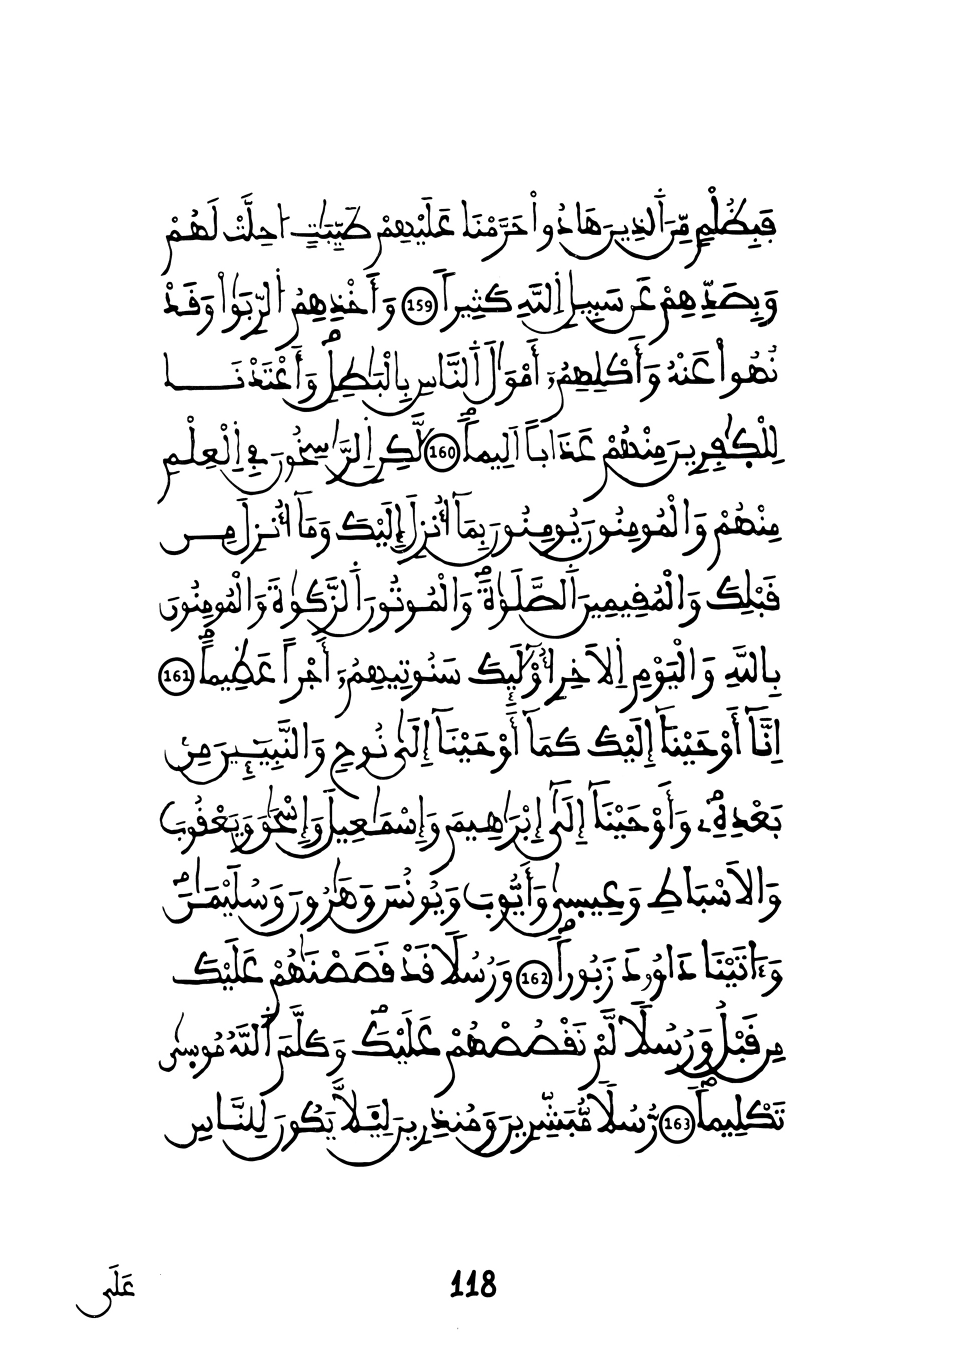 فَبِظُلْمٍ مِّنَ اَلذِينَ هَادُواْ حَرَّمْنَا عَلَيْهِمْ طَيِّبَٰتٍ ا۟حِلَّتْ لَهُمْ
وَبِصَدِّهِمْ عَن سَبِيلِ اِللَّهِ كَثِيراً 159 وَأَخْذِهِمُ اُلرِّبَوٰاْ وَقَدْ
نُهُواْ عَنْهُ وَأَكْلِهِمُۥٓ أَمْوَٰلَ اَلنَّاسِ بِالْبَٰطِلِۖ وَأَعْتَدْنَا
لِلْكٰفِرِينَ مِنْهُمْ عَذَاباً اَلِيماًۖ 160 لَّٰكِنِ اِلرَّٰسِخُونَ فِے اِلْعِلْمِ
مِنْهُمْ وَالْمُومِنُونَ يُومِنُونَ بِمَآ أُنزِلَ إِلَيْكَ وَمَآ أُنزِلَ مِن
قَبْلِكَ وَالْمُقِيمِينَ اَلصَّلَوٰةَۖ وَالْمُوتُونَ اَلزَّكَوٰةَ وَالْمُومِنُونَ
بِاللَّهِ وَالْيَوْمِ اِلَاخِرِ أُوْلَٰٓئِكَ سَنُوتِيهِمُۥٓ أَجْراً عَظِيماًۖ 161
إِنَّآ أَوْحَيْنَآ إِلَيْكَ كَمَآ أَوْحَيْنَآ إِلَىٰ نُوحٍ وَالنَّبِيٓـِٕينَ مِنۢ
بَعْدِهِۦۖ وَأَوْحَيْنَآ إِلَىٰٓ إِبْرَٰهِيمَ وَإِسْمَٰعِيلَ وَإِسْحَٰقَ وَيَعْقُوبَ
وَالَاسْبَاطِ وَعِيسىٰ وَأَيُّوبَ وَيُونُسَ وَهَٰرُونَ وَسُلَيْمَٰنَۖ
وَءَاتَيْنَا دَاوُۥدَ زَبُوراًۖ 162 وَرُسُلاً قَدْ قَصَصْنَٰهُمْ عَلَيْكَ
مِن قَبْلُ وَرُسُلاً لَّمْ نَقْصُصْهُمْ عَلَيْكَۖ وَكَلَّمَ اَللَّهُ مُوسىٰ
تَكْلِيماًۖ 163 رُّسُلاً مُّبَشِّرِينَ وَمُنذِرِينَ لِيَ۬لَّا يَكُونَ لِلنَّاسِ
118
عَلَى